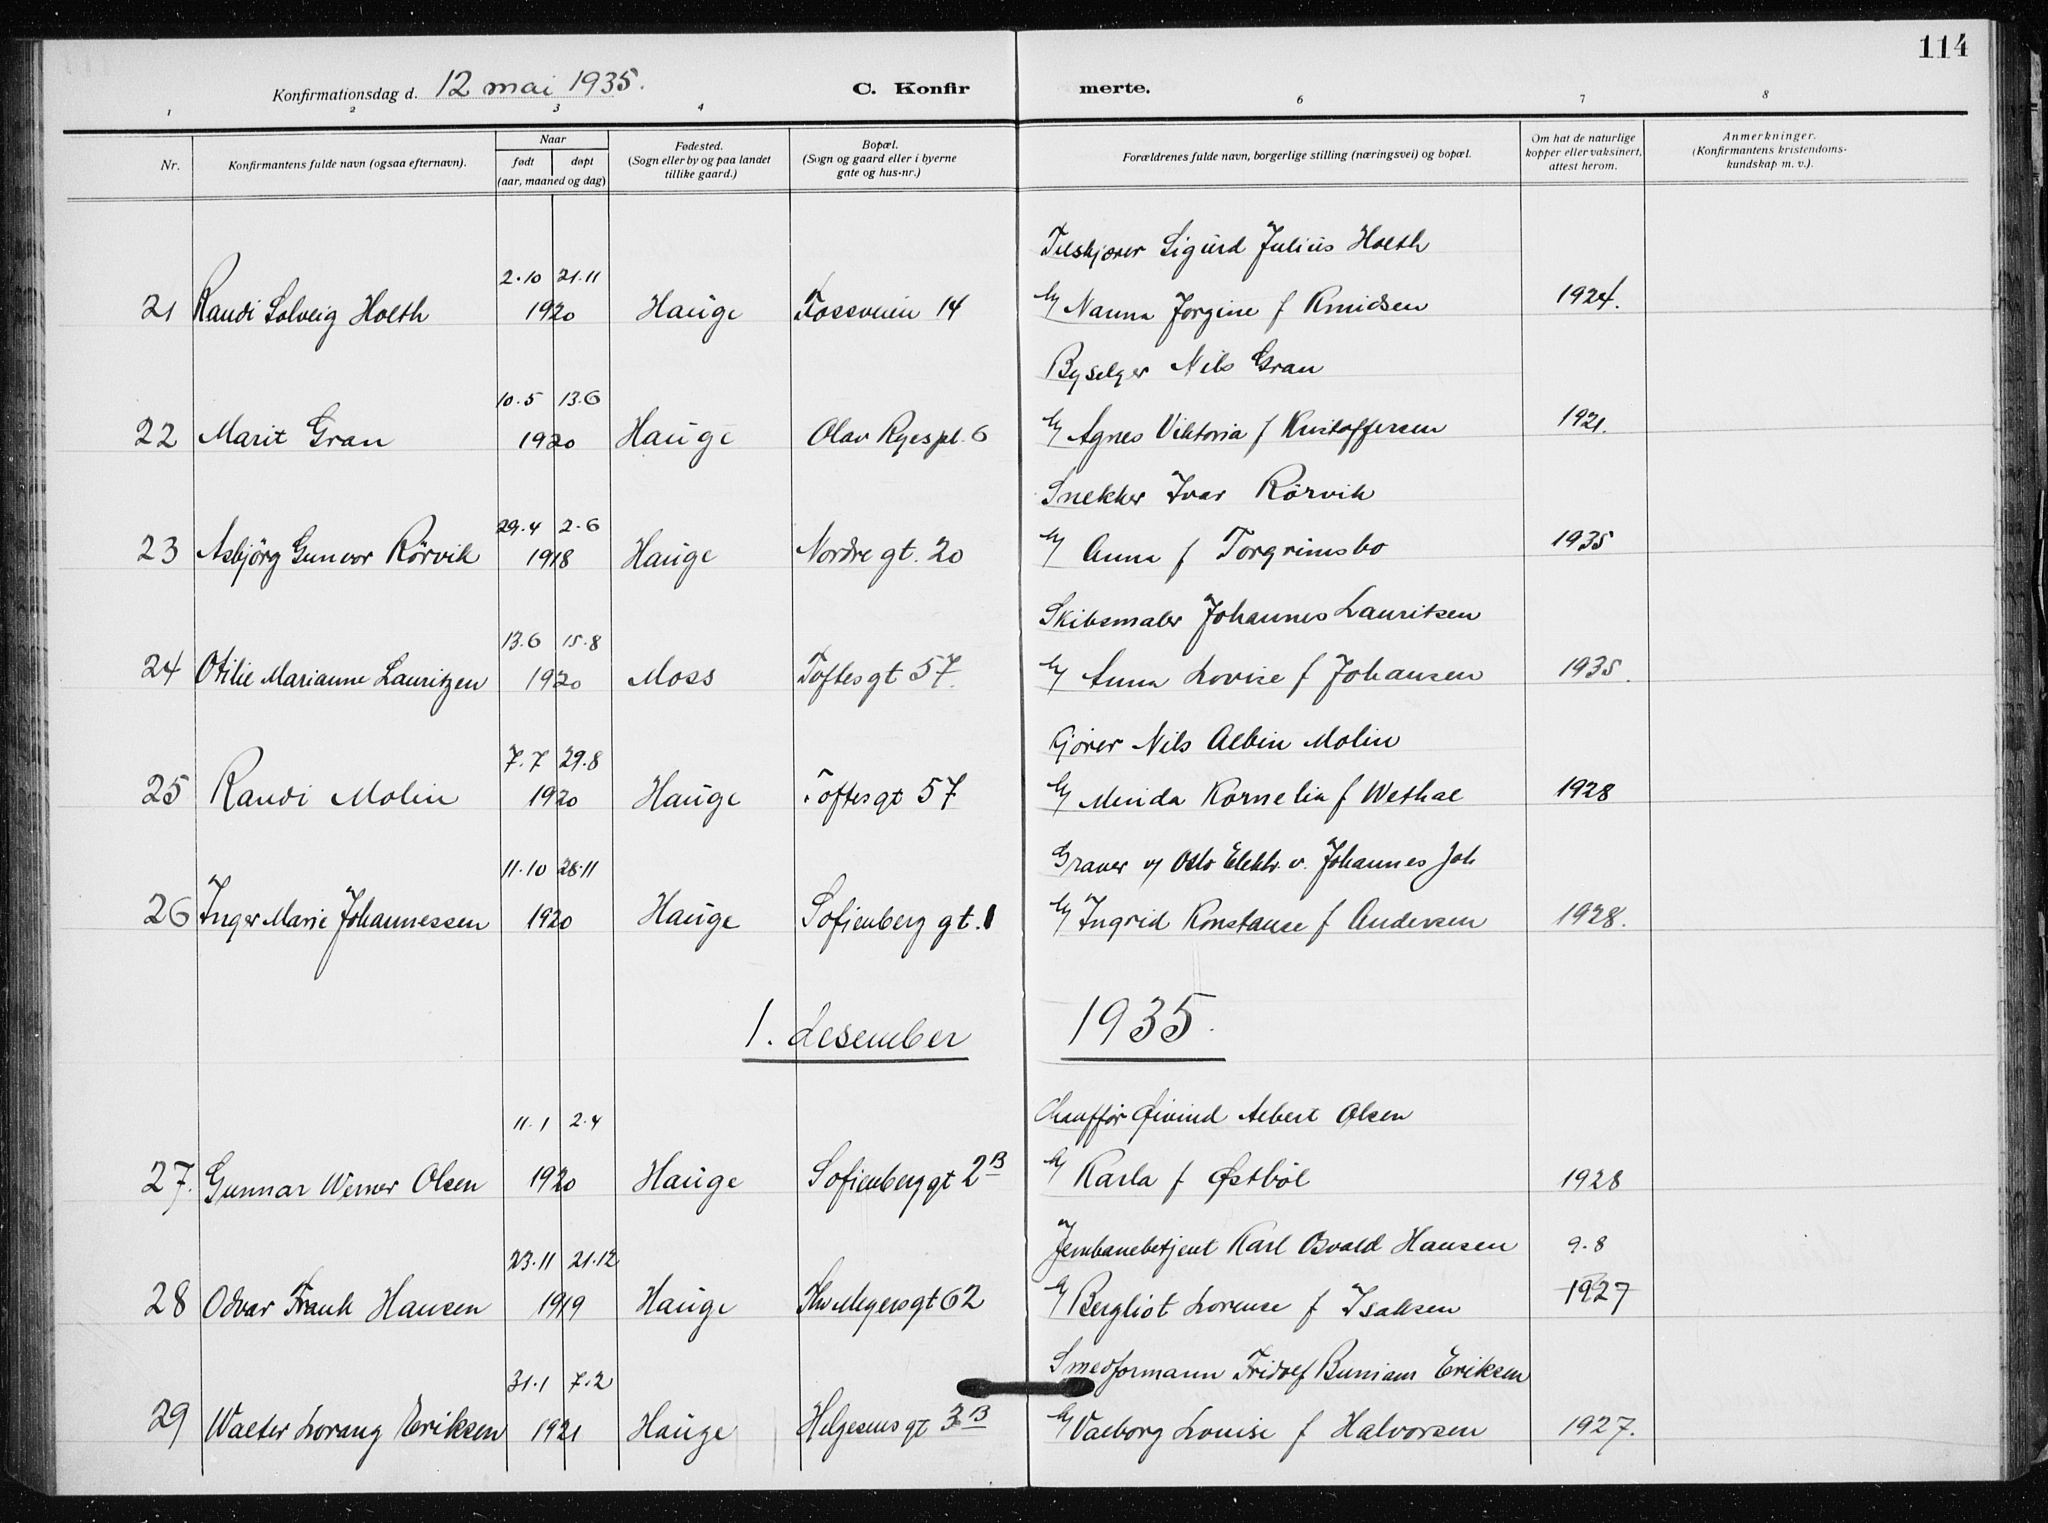 114
Konfirmationsdag d. 12 mai 1935. C. Konfirmerte.
1 2 3 4 6 7 8
Nr. Konfirmantens fulde navn (ogsaa efternavn). Naar født døpt (aar, maaned og dag) Fødested. (Sogn eller by og paa landet tillike gaard.) Bopæl. (Sogn og gaard eller i byerne gate og hus-nr.) Forældrenes fulde navn, borgerlige stilling (næringsvei) og bopæl. Om hat de naturlige kopper eller vaksinert, attest herom. Anmerkninger. (Konfirmantens kristendomskundskap m. v.).
Sigurd Julius Holth
2.10 21.11
21 Randi Solveig Holth 1920 Hauge Fossveien 14 Nanna Jorgine f Knudsen 1924.
Byselger Nils Gran
10.5 13.6
22 Marit Gran 1920 Hauge Olav Ryes pl. 6 Agnes Viktoria f Kristoffersen 1921.
Snekker Ivar Rørvik
29.4 2.6
23 Asbjörg Gunvor Rörvik 1918 Hauge Nordre gt. 20 Anna f Torgrimsbo 1935
Skibsmaler Johannes Lauritsen
13.6 15.8
24 Otilie Marianne Lauritzen 1920 Moss Toftes gt 57. Anna Lovise f Johansen 1935.
Kjører Nils Albin Molin
7.7 29.8
25 Randi Molin 1920 Hauge Toftes gt 57 Minda Kornelia f Wethal 1928
Graver v/ Oslo Elektr. v. Johannes Joh
11.10 28.11
26 Inger Marie Johannessen 1920 Hauge Sofienberg gt. 1 Ingrid Konstanse f Andersen 1928.
1. desember 1935.
Chauffør Øivind Albert Olsen
11.1 2.4
27. Gunnar Werner Olsen 1920 Hauge Sofienberg gt 2B Karla f Østbøl 1928
Jernbanebetjent Karl Osvald Hansen 9.8
23.11 21.12
28 Odvar Frank Hansen 1919 Hauge Thv Meyers gt 62 Bergliot Lorense f Isaksen 1927
Smedformann Fridolf Eriksen
31.1 7.2
29 Walter Lorang Eriksen 1921 Hauge Helgesens gt 3B Valborg Louise f Halvorsen 1927.